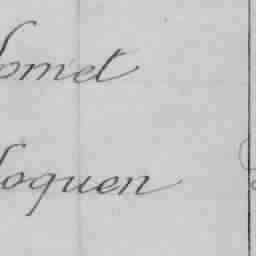 omet
loquen